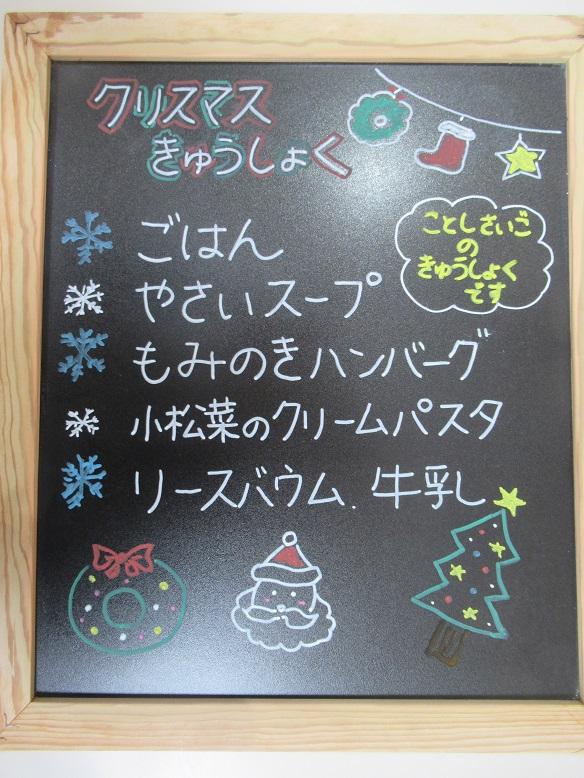 クリスマス
きゅうしょく
ことしさいご
の
きゅうしょく
です
ごはん
やさいスープ
もみのきハンバーグ
小松菜のクリームパスタ
リースバウム、牛乳